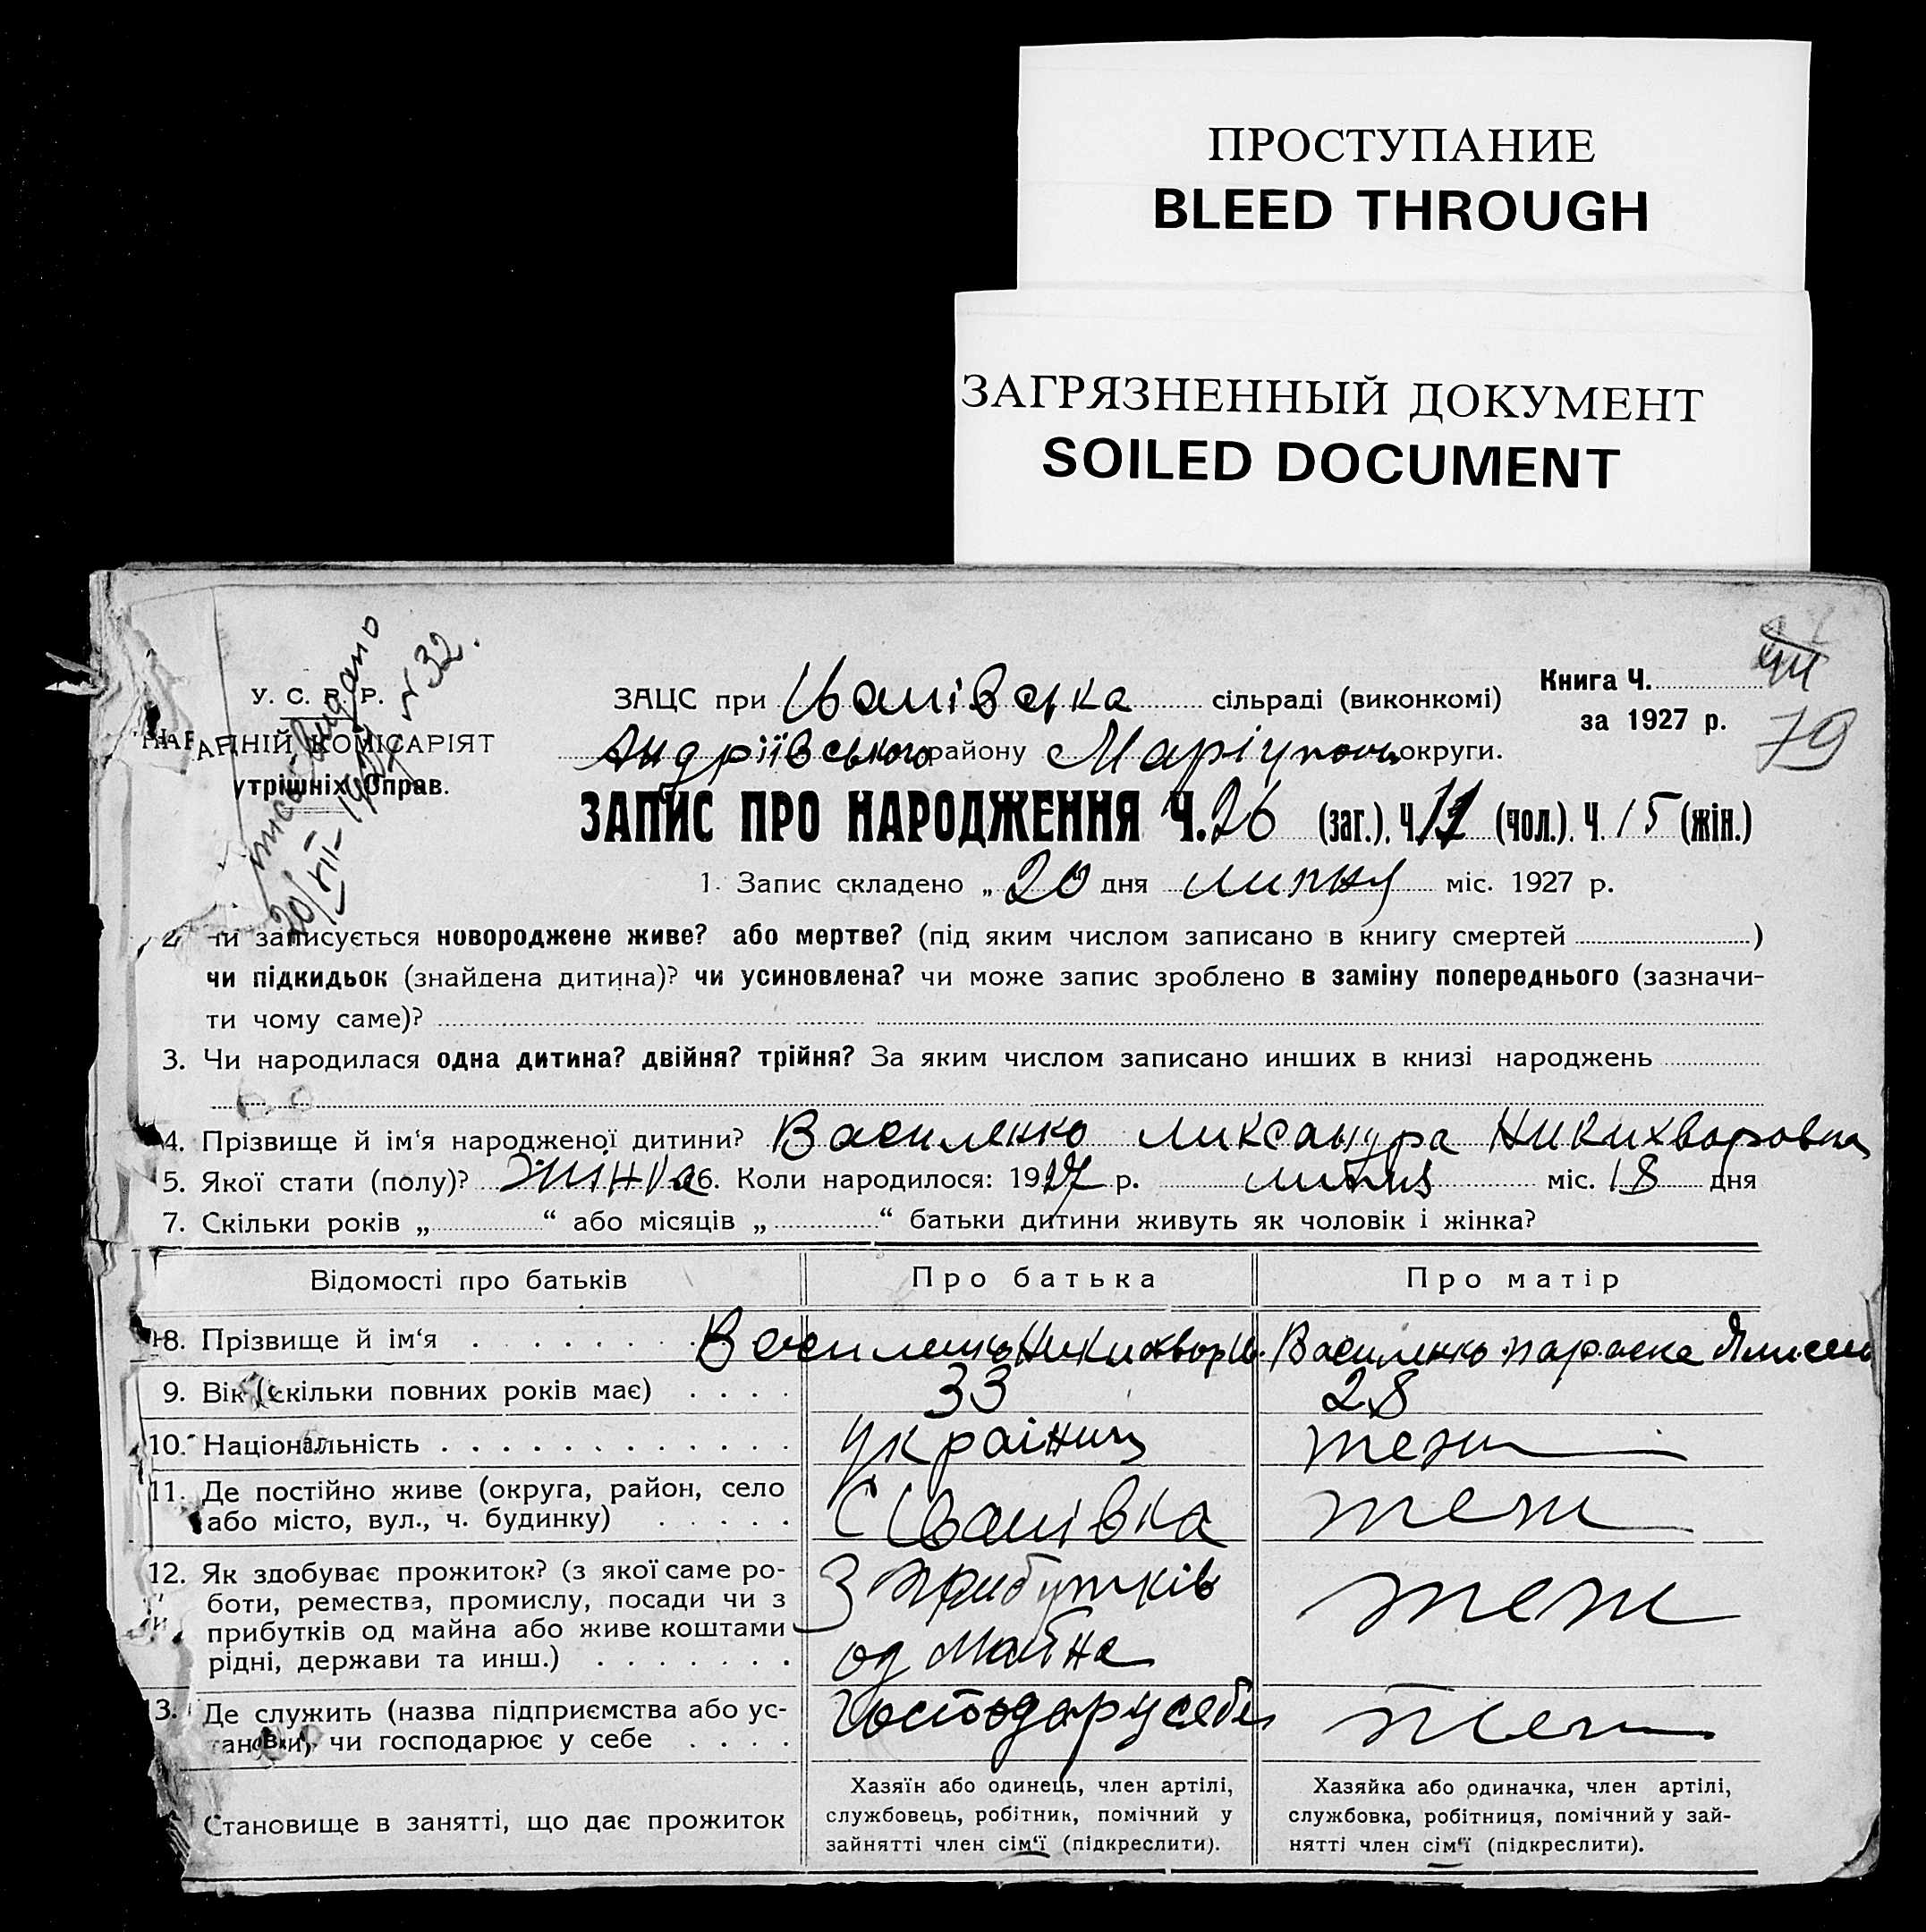 ПРОСТУПАНИЕ
BLEED THROUGH
ЗАГРЯЗНЕННЫЙ ДОКУМЕНТ
SOILED DOCUMENT
У. С. Р. Р.
НАР АРНІЙ КОМІСАРІЯТ
утрішніх Справ.
видано
20/VII- № 32.
ЗАЦС при Іванівська сільраді (виконкомі)
Книга Ч.
за 1927 р.
79
Андріївського району Маріупол округи.
ЗАПИС ПРО НАРОДЖЕННЯ Ч. 26 (заг.), Ч. 11 (чол.). Ч. 15 (жін.)
1. Запис складено „ 20 " дня липня міс. 1927 р.
2. чи записується новороджене живе? або мертве? (під яким числом записано в книгу смертей )
чи підкидьок (знайдена дитина)? чи усиновлена? чи може запис зроблено в заміну попереднього (зазначи-
ти чому саме)?
3. Чи народилася одна дитина? двійня? трійня? За яким числом записано инших в книзі народжень
4. Прізвище й ім'я народженої дитини? Василенко Ликсандра Никихворовна
5. Якої стати (полу)? жіноча 6. Коли народилося: 1927 р. липня міс. 18 дня
7. Скільки років „ “ або місяців „ “ батьки дитини живуть як чоловік і жінка?
Відомості про батьків Про батька Про матір
8. Прізвище й ім'я Василенко Никихвор Ів. Василенко параска
9. Вік (скільки повних років має) 33 28
10. Національність україниц теж
11. Де постійно живе (округа, район, село
або місто, вул., ч. будинку)
С Іванівка теж
12. Як здобуває прожиток? (з якої саме ро-
боти, ремества, промислу, посади чи з
прибутків од майна або живе коштами
рідні, держави та инш.)
З прибутків
од майна
теж
13. Де служить (назва підприємства або ус-
танови) чи господарює у себе
Господар у себе теж
Становище в занятті, що дає прожиток
Хазяїн або одинець, член артілі,
службовець, робітник, помічний у
зайнятті член сім'ї (підкреслити).
Хазяйка або одиначка, член артілі,
службовка, робітниця, помічний у зай-
нятті член сім'ї (підкреслити).